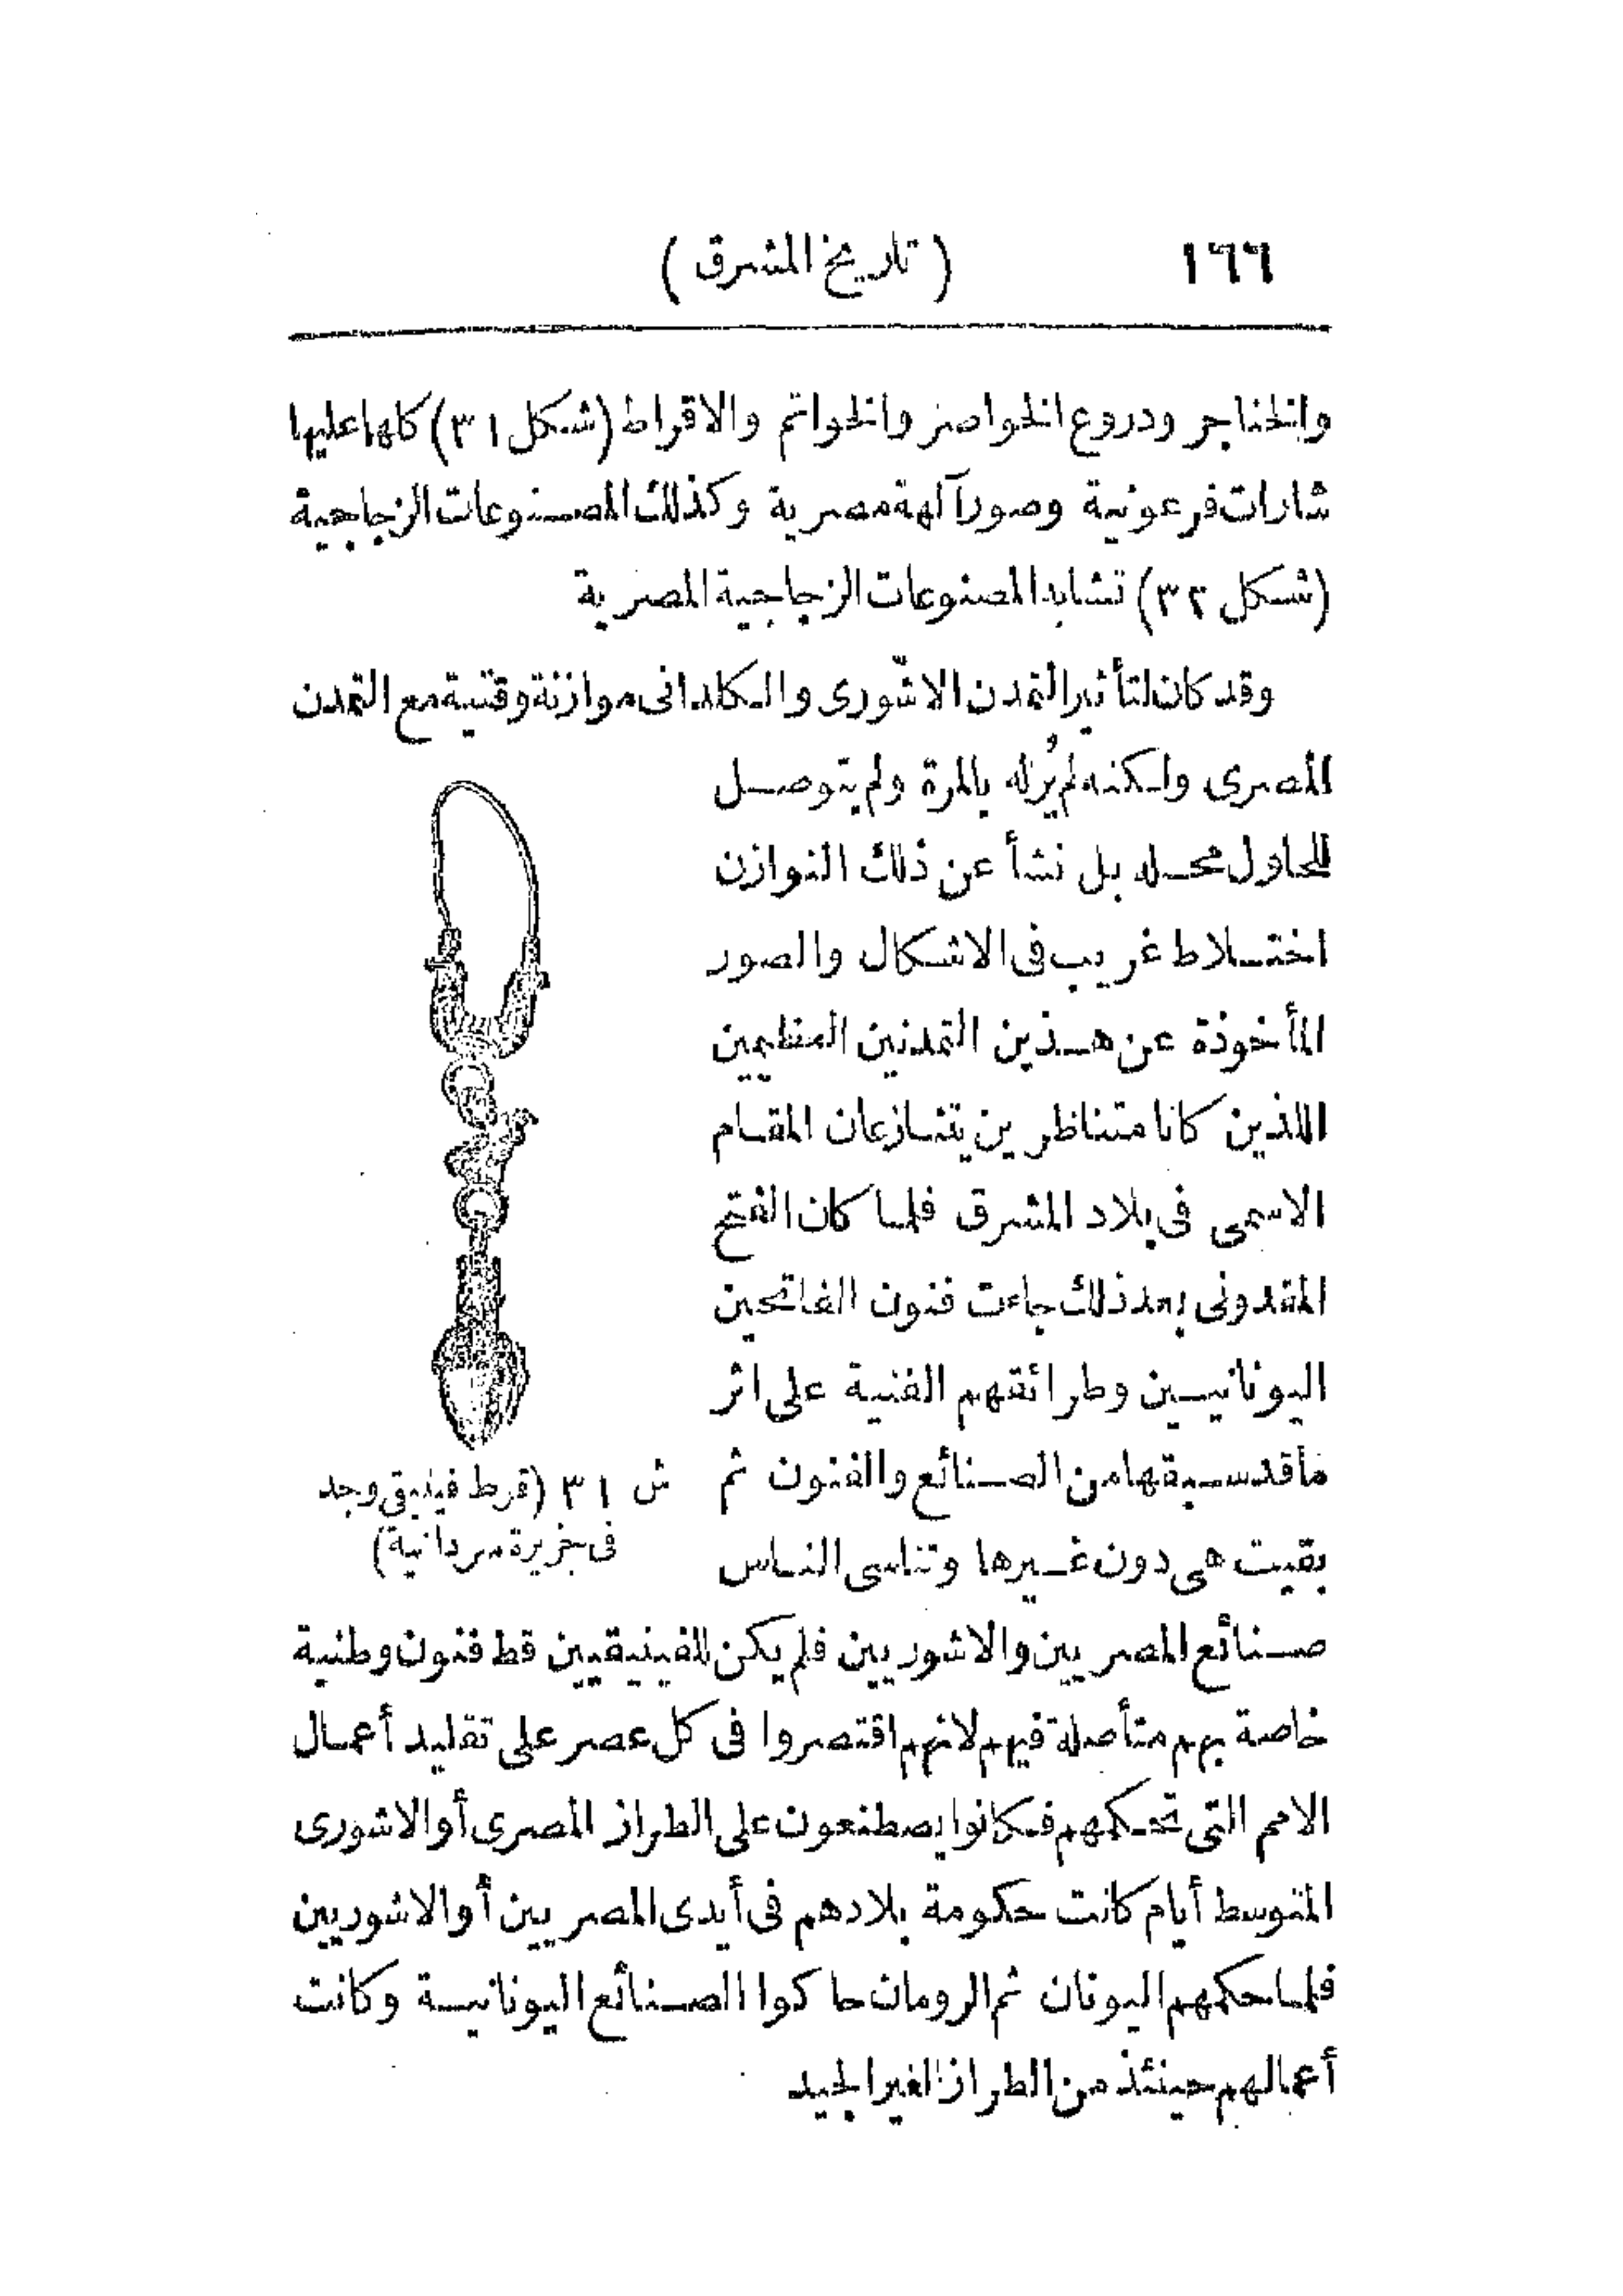 ١٦٦ ( تاريخ المشرق )
والخناجر ودروع الخواصر والخواتم والاقراط (شكل ٣١) كلها عليها
شارات فرعونية وصور آلهة مصرية وكذلك المصنوعات الزجاجية
(شكل ٣٢) تشابه المصنوعات الزجاجية المصرية
وقد كان لتأثير التمدن الاشّورى والكلدانى موازنة وقتية مع التمدن
المصرى ولكنه لم يُزله بالمرة ولم يتوصل
للحلول محله بل نشأ عن ذلك التوازن
اختلاط غريب فى الاشكال والصور
المأخوذة عن هذين التمدنين العظيمين
اللذين كانا متناظرين يتنازعان المقام
الاسمى فى بلاد المشرق فلما كان الفتح
المقدونى بعد ذلك جاءت فنون الفاتحين
اليونانيين وطرائقهم الفنية على اثر
ما قد سبقها من الصنائع والفنون ثم
بقيت هى دون غيرها وتناسى الناس
ش ٣١ (قرط فينيقى وجد
فى جزيرة سردانية)
صنائع المصريين والاشوريين فلم يكن للفينيقيين قط فنون وطنية
خاصة بهم متأصلة فيهم لانهم اقتصروا فى كل عصر على تقليد أعمال
الامم التى تحكمهم فكانوا يصطنعون على الطراز المصرى أو الاشورى
المتوسط أيام كانت حكومة بلادهم فى أيدى المصريين أو الاشوريين
فلما حكمهم اليونان ثم الرومان حاكوا الصنائع اليونانية وكانت
أعمالهم حينئذ من الطراز الغير الجيد